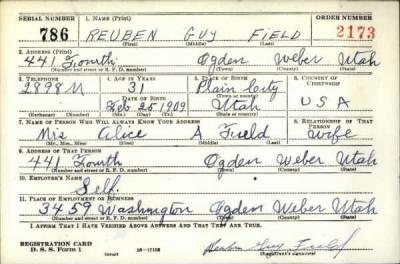 SERIAL NUMBER 1. NAME (Print) ORDER NUMBER
786 REUBEN GUY FIELD 2173
(First) (Middle) (Last)
2. ADDRESS (Print)
441 Fourth Ogden Weber Utah
(Number and street or R. F. D. number) (Town) (County) (State)
3. TELEPHONE 4. AGE IN YEARS 5. PLACE OF BIRTH 6. COUNTRY OF CITIZENSHIP
2898 M 31 Plain City
DATE OF BIRTH (Town or county)
Feb. 25 1909 Utah U S A
(Exchange) (Number) (Mo.) (Day) (Yr.) (State or country)
7. NAME OF PERSON WHO WILL ALWAYS KNOW YOUR ADDRESS 8. RELATIONSHIP OF THAT PERSON
Mrs Alice A Field Wife
(Mr., Mrs., Miss) (First) (Middle) (Last)
9. ADDRESS OF THAT PERSON
441 Fourth Ogden Weber Utah
(Number and street or R. F. D. number) (Town) (County) (State)
10. EMPLOYER'S NAME
Self.
11. PLACE OF EMPLOYMENT OR BUSINESS
3459 Washington Ogden Weber Utah
(Number and street or R. F. D. number) (Town) (County) (State)
I AFFIRM THAT I HAVE VERIFIED ABOVE ANSWERS AND THAT THEY ARE TRUE.
REGISTRATION CARD
D. S. S. Form 1 (over) 16-17105 Reuben Guy Field
(Registrant's signature)